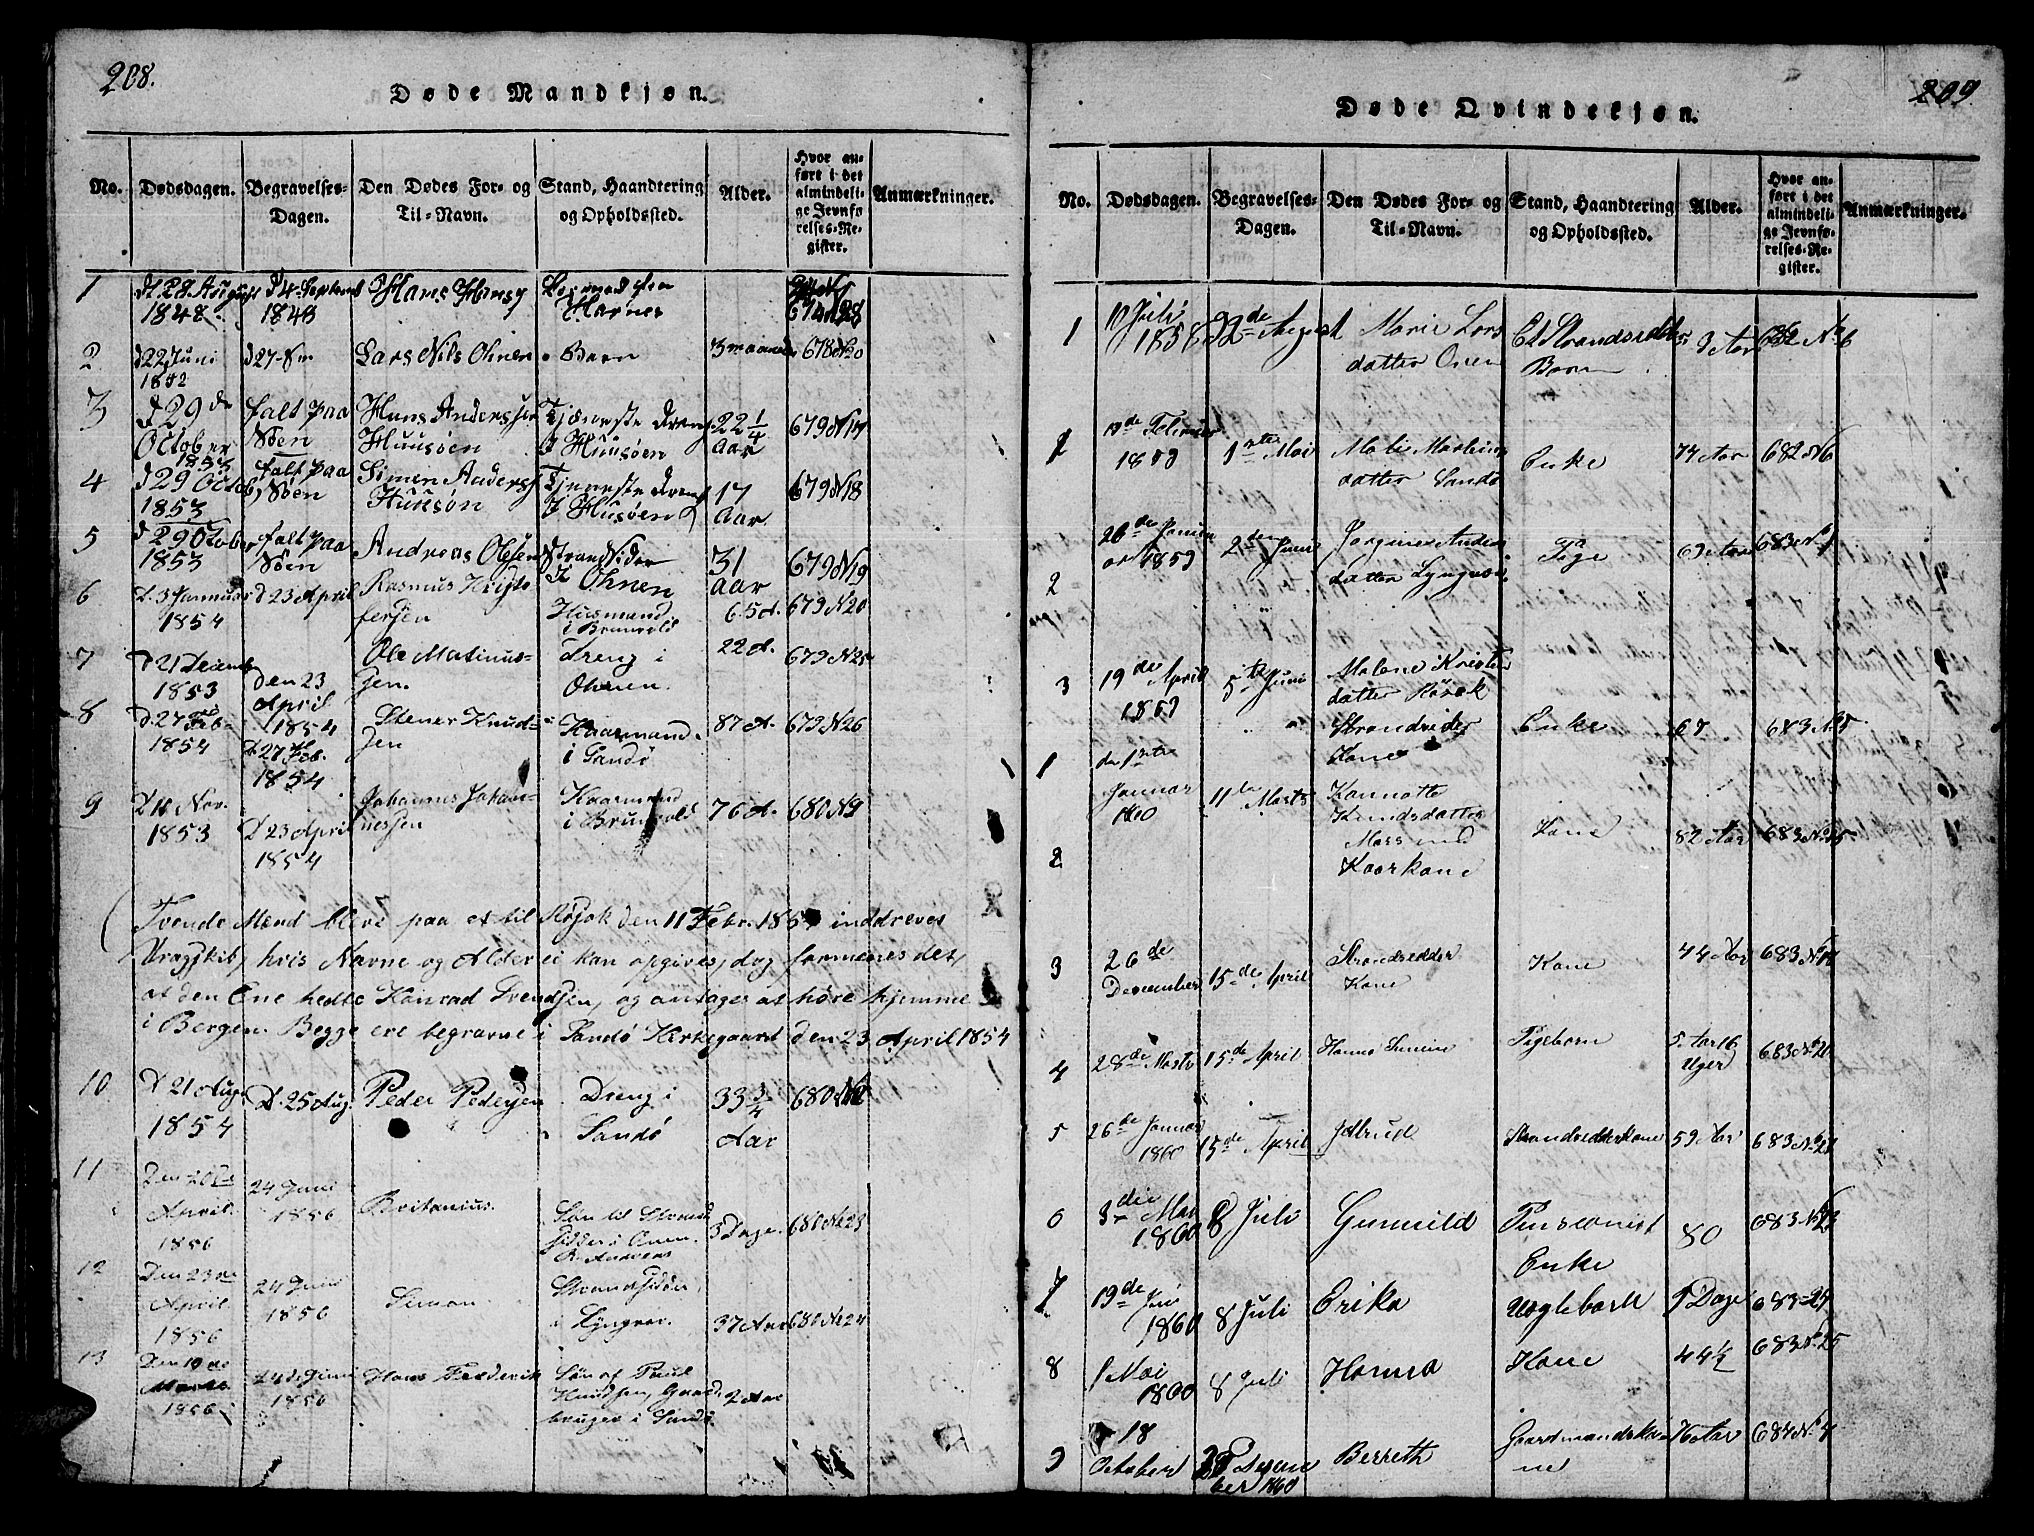 208.
Døde Mandkjøn.
No.
Dødsdagen.
Begravelses-
Dagen.
Den Dødes For- og
Til-Navn.
Stand, Haandtering
og Opholdssted.
Alder.
Hvor an-
ført i det
almindeli-
ge Jevnfø
relses-Re-
gister.
Anmærkninger.
1
d. 28 August
1848
d 4 Septemb
1848
Hans Hansj
Harnes
2
d 22 Juni
1852
d 27
Lars Nils Ohnen
Barn
3 maaneder
678 N20
3
d 29 de
October
1853
falt paa
Søen
Hans Anderssen
Huusøen
Tjeneste dreng
I Huusøen
22 1/4
aar
679 N17
4
d 29 Octob
1853
falt paa
Søen
Simen Andersj
Huusøn
Tjeneste dreng
I Husøen
17
aar
679 N18
5
d 29 Otober
1853
falt paa
Søen
Andreas Olsen
Strandsider
I Ohnen
31
aar
679 N19
6
D. 3 Januar
1854
d 23 April
Rasmus Kristo
fersen
Husmand
i Brunvold
65 A.
679 N20
7
d 21 Decemb
1853
den 23
April
1854
Ole Matinus-
sen.
Dreng i
Ohnen.
22 A.
679 N25
8
d. 27 Feb-
1854
D. 27 Feb.
1854
Stener Knud-
sen
Kaarmand
i Sandø
87 A.
679 N26
9
D 11 Nov.
1853
D. 23 April
1854
Johannes Johan-
nessen
Kaarmand
i Brunvold
76 A.
680 N9
Tvende Mænd bleve paa et til Røsok den 11 Febr. 1854 inddreves
Vragskib, hvis Navne og Alder ei kan opgives, dog formenes det,
at den Ene hedte Konrad Svendsen, og antages at høre hjemme
i Bergen. Begge ere begravne i Sandø Kirkegaard den 23 April 1854
10
D. 21 Aug.
1854
D. 25 Aug.
Peder Pedersen
Dreng i
Sandø
33 3/4
Aar
680 N
11
Den 20de
April.
1856
24 Juni
1856
Britanius.
Søn til Strand
sidder i Onen
R. Andreas
3 Dage.
680 No 23
12
Den 23 de
April.
1856
24 Juni
1856
Simon.
Strandsidder
i Lyngvær.
37 Aar
680 No 24
13
Den 19 de
Marts
1856
24 d. Juni
1856
Hans Frederik
Søn af Poul
Knudsen, Gaard
bruger i Sandø.
2 Aar
209.
Døde Qvindekjøn.
No.
Dødsdagen.
Begravelses-
Dagen.
Den Dødes For- og
Til-Navn.
Stand, Haandtering
og Opholdssted.
Alder.
Hvor an-
ført i det
almindeli-
ge Jevnfø-
relses-Re-
gister.
Anmærkninger.
1
10 Juli
1858
22de August
Marie Lars
datter Onen
Et Strandsidder
Barn
9 Aar
682 No 6
1
de Februar
1859
1ste Mai
Mali Martins
datter Sandø
Enke
74 Aar
682 N6
2
26de Janua
ar 1859
2den Juni
Jorgine Anders
datter Lyngvær
Pige
69 Aar
683 No 1
3
19de April
1859
5te Juni
Malene Krister
datter Røsok
Strandsider
Kone
Enke
67
683 No 5
1
de 1ste
Januar
1860
11te Marts
Kannotte
Knudsdatter
Kone
82 Aar
683 No 15
2
Kaarkone
3
26de
December
15de April
Strandsidder
Kone
Kone
44 Aar
683 No 19
4
28de Marts
15de April
Hanna
Pigebarn
5 Aar 16
Uger
683 No 20
5
26de Januar
1860
15de April
Idtrud
Strandsidderkone
59 Aar
683 No 21
6
3die Mai
1860
8 Juli
Gunnild
Pensionist
Enke
80
683 No 23
7
19de Juni
1860
8 Juli
Erika
Uægtebarn
9 Dage
683-24
8
1 Mai
1860
8 Juli
Hanna
Kone
44½
683 No 25
9
18
October
Desem
ber 1860
Berreth
Gaardmandsko
ne
76 Aar
684 No 4